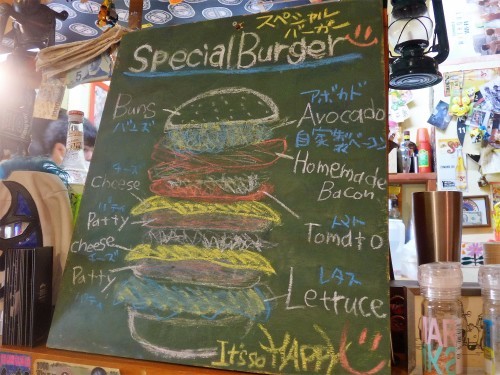 スペシャル
バーガー
Special Burger
Buns
バンズ
アボカド
Avocado
自家製ベーコン
Homemade
Bacon
チーズ
Cheese
パティ
Patty
トマト
Tomato
Cheese
チーズ
Patty
パティ
レタス
Lettuce
It's so HAPPY